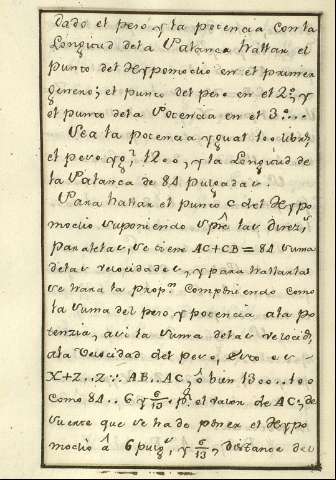 dado el peso, y la potencia con la
Longitud dela Palanca hallar el
punto del Hypomoclio en el primer
genero; el punto del peso en el 2º, y
el punto dela Potencia en el 3º...
Sea la potencia ygual 100 librs,
el peso ygl 1200, y la Longitud de
la Palanca de 84 pulgadas.
Para hallar el punto C del Hypo
moclio suponiendo spre las direzs
paralelas, se tiene AC+CB=84 suma
delas velocidades, y para hallarlas
se hara la propn componiendo como
la suma del peso y potencia ala po
tenzia, asi la suma delas velocids
ala velocidad del peso, esto es
X+Z..Z:: AB..AC, ô bien 1300...100
como 84.. 6 y 6/13 pr el valor de AC; de
suerte que se ha de poner el Hypo
moclio â 6 pulgs y 6/13, distante del